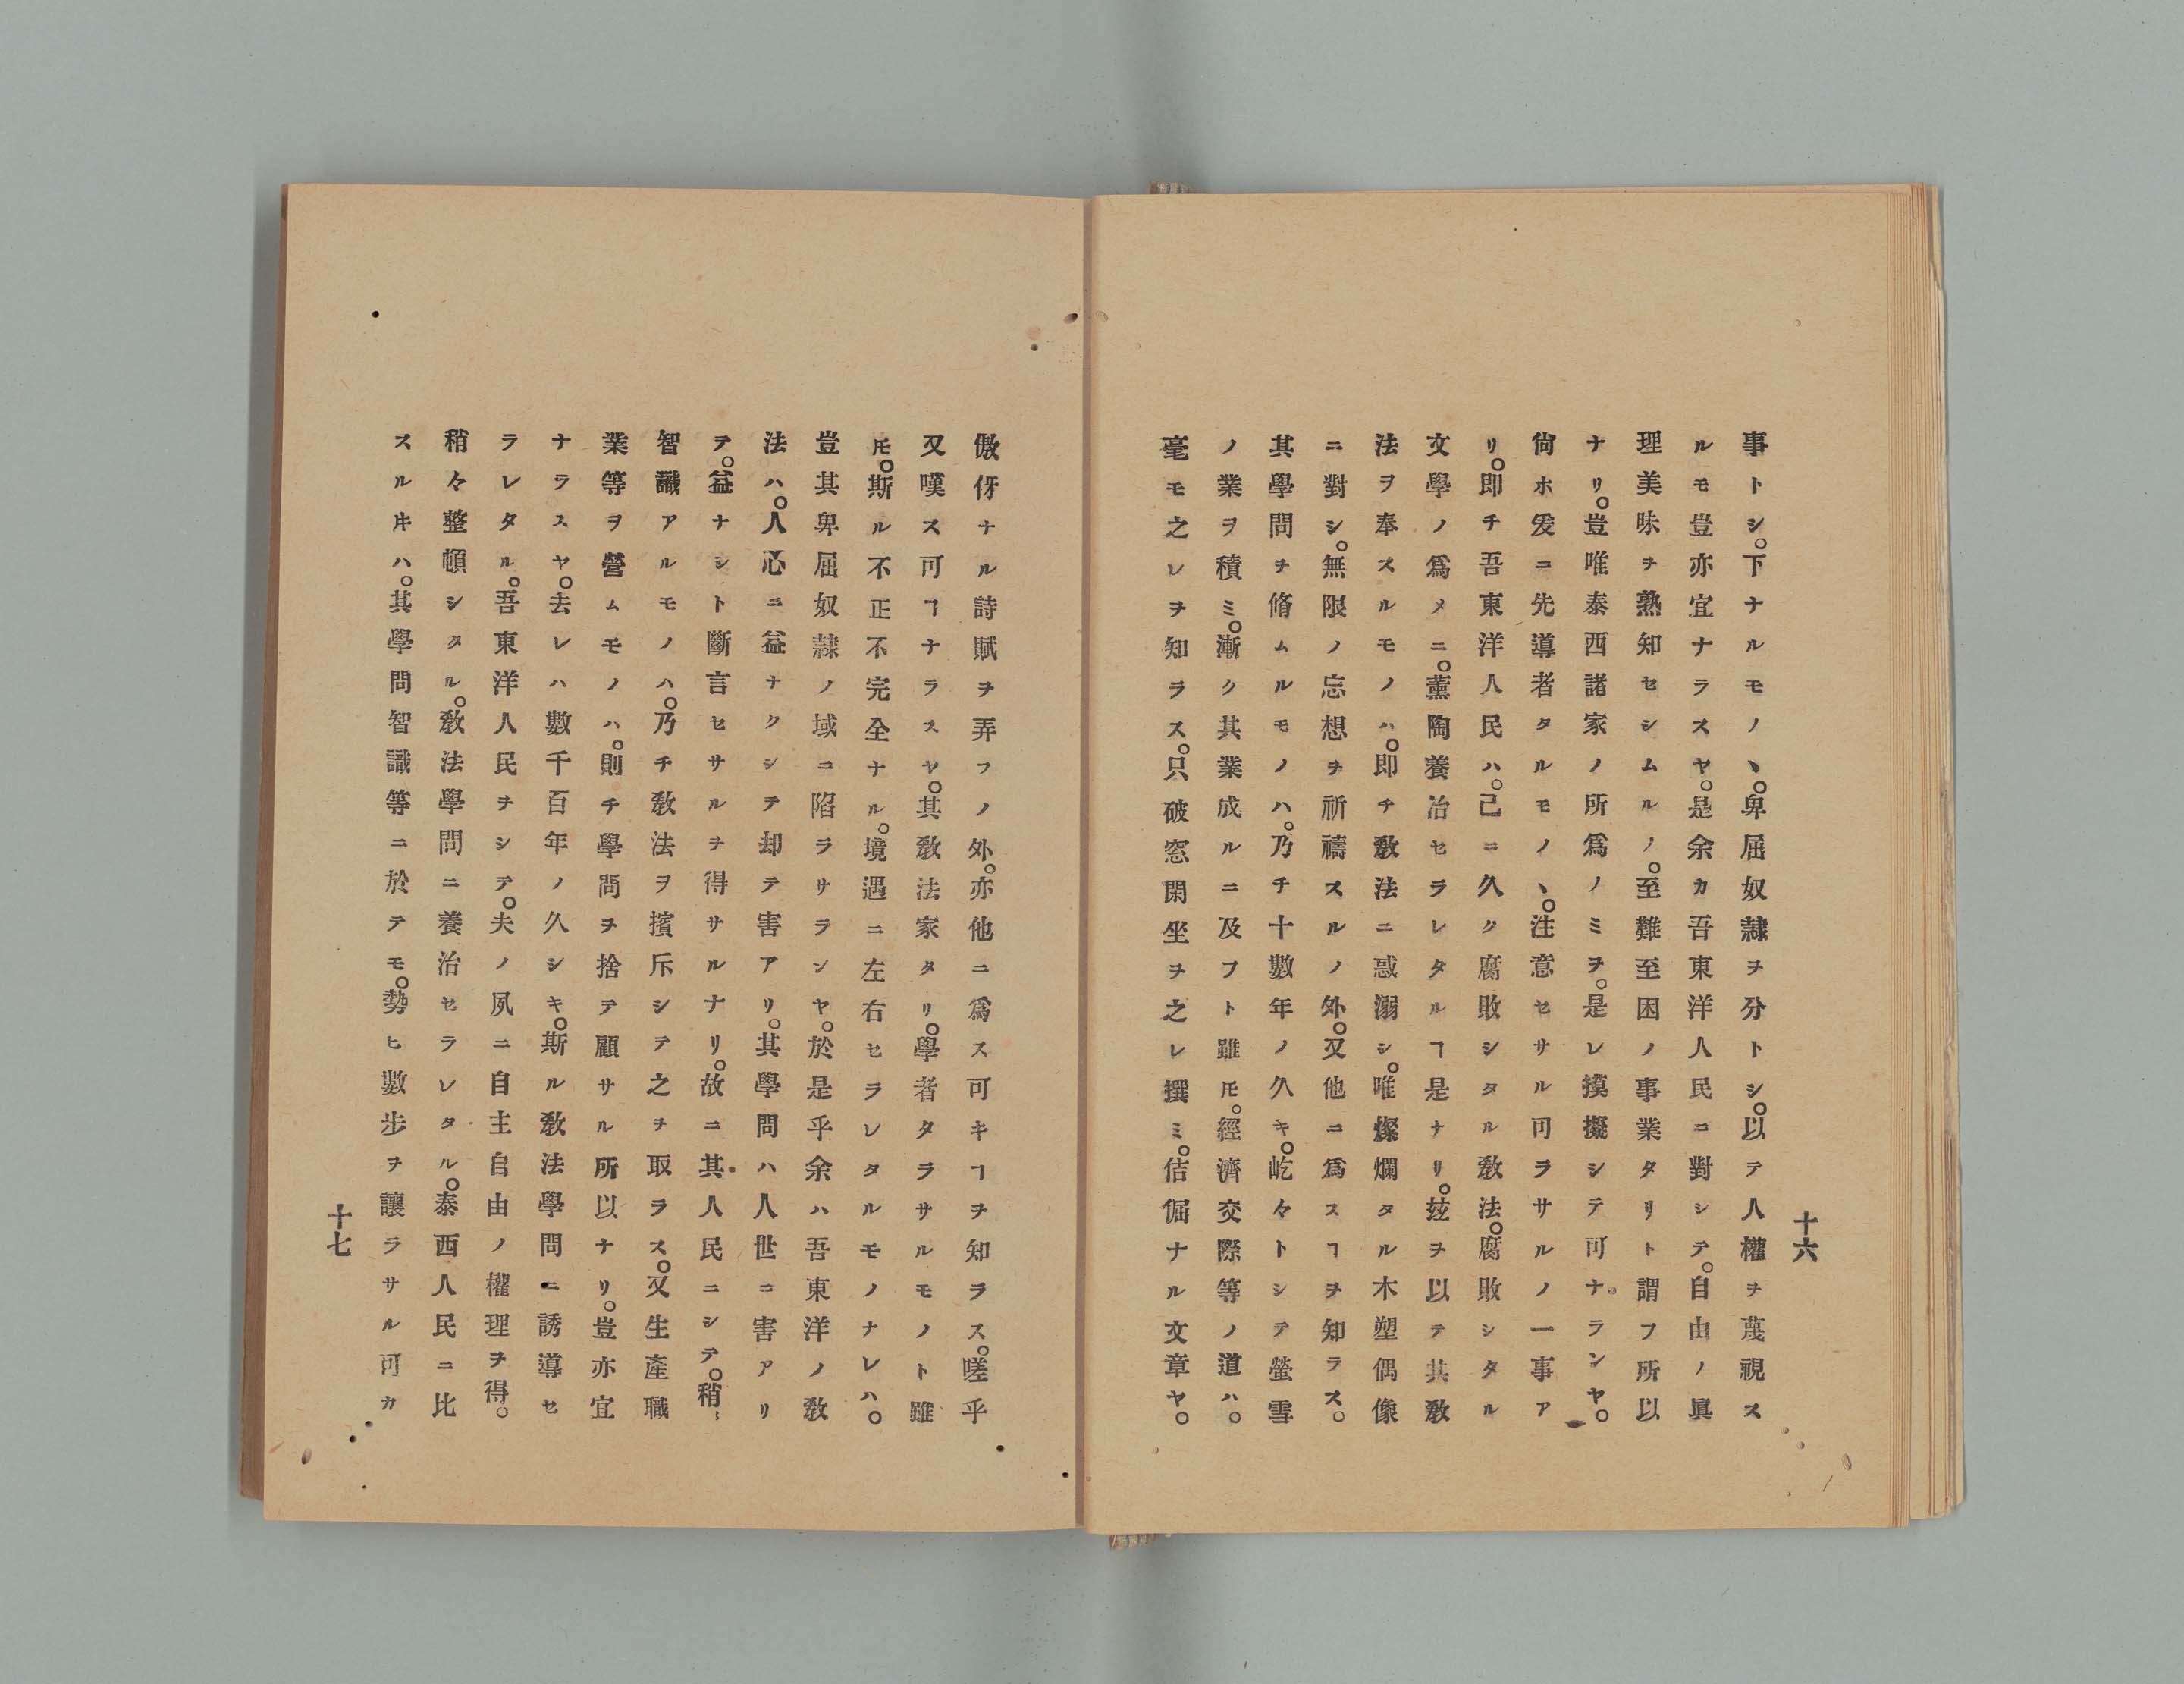 十六
事トシ。下ナルモノヽ。卑屈奴隷ヲ分トシ。以テ人權ヲ蔑視ス
ルモ豈亦宜ナラスヤ。是余カ吾東洋人民ニ對シテ。自由ノ眞
理美味ヲ熟知セシムルノ。至難至困ノ事業タリト謂フ所以
ナリ。豈唯泰西諸家ノ所爲ノミヲ。是レ摸擬シテ可ナランヤ。
尙ホ爰ニ先導者タルモノヽ。注意セサル可ラサルノ一事ア
リ。即チ吾東洋人民ハ。己ニ久ク腐敗シタル敎法。腐敗シタル
文學ノ爲メニ。薰陶養冶セラレタルヿ是ナリ。玆ヲ以テ其敎
法ヲ奉スルモノハ。即チ敎法ニ惑溺シ。唯燦爛タル木塑偶像
ニ對シ。無限ノ忘想ヲ祈禱スルノ外。又他ニ爲スヿヲ知ラス。
其學問ヲ脩ムルモノハ。乃チ十數年ノ久キ。屹々トシテ螢雪
ノ業ヲ積ミ。漸ク其業成ルニ及フト雖モ。經濟交際等ノ道ハ。
毫モ之レヲ知ラス。只破窓閑坐ヲ之レ撰ミ。佶倔ナル文章ヤ。
傲伢ナル詩賦ヲ弄フノ外。亦他ニ爲ス可キヿヲ知ラス。嗟乎
又嘆ス可ヿナラスヤ。其敎法家タリ。學者タラサルモノト雖
𪜈。斯ル不正不完全ナル。境遇ニ左右セラレタルモノナレハ。
豈其卑屈奴隷ノ域ニ陷ラサランヤ。於是乎余ハ吾東洋ノ敎
法ハ。人心ニ益ナクシテ却テ害アリ。其學問ハ人世ニ害アリ
テ。益ナシト斷言セサルヲ得サルナリ。故ニ其人民ニシテ。稍々
智識アルモノハ。乃チ敎法ヲ擯斥シテ之ヲ取ラス。又生產職
業等ヲ營ムモノハ。則チ學問ヲ捨テ顧サル所以ナリ。豈亦宜
ナラスヤ。去レハ數千百年ノ久シキ。斯ル敎法學問ニ誘導セ
ラレタル。吾東洋人民ヲシテ。夫ノ夙ニ自主自由ノ權理ヲ得。
稍々整頓シタル。敎法學問ニ養治セラレタル。泰西人民ニ比
スル𪜈ハ。其學問智識等ニ於テモ。勢ヒ數步ヲ讓ラサル可カ
十七